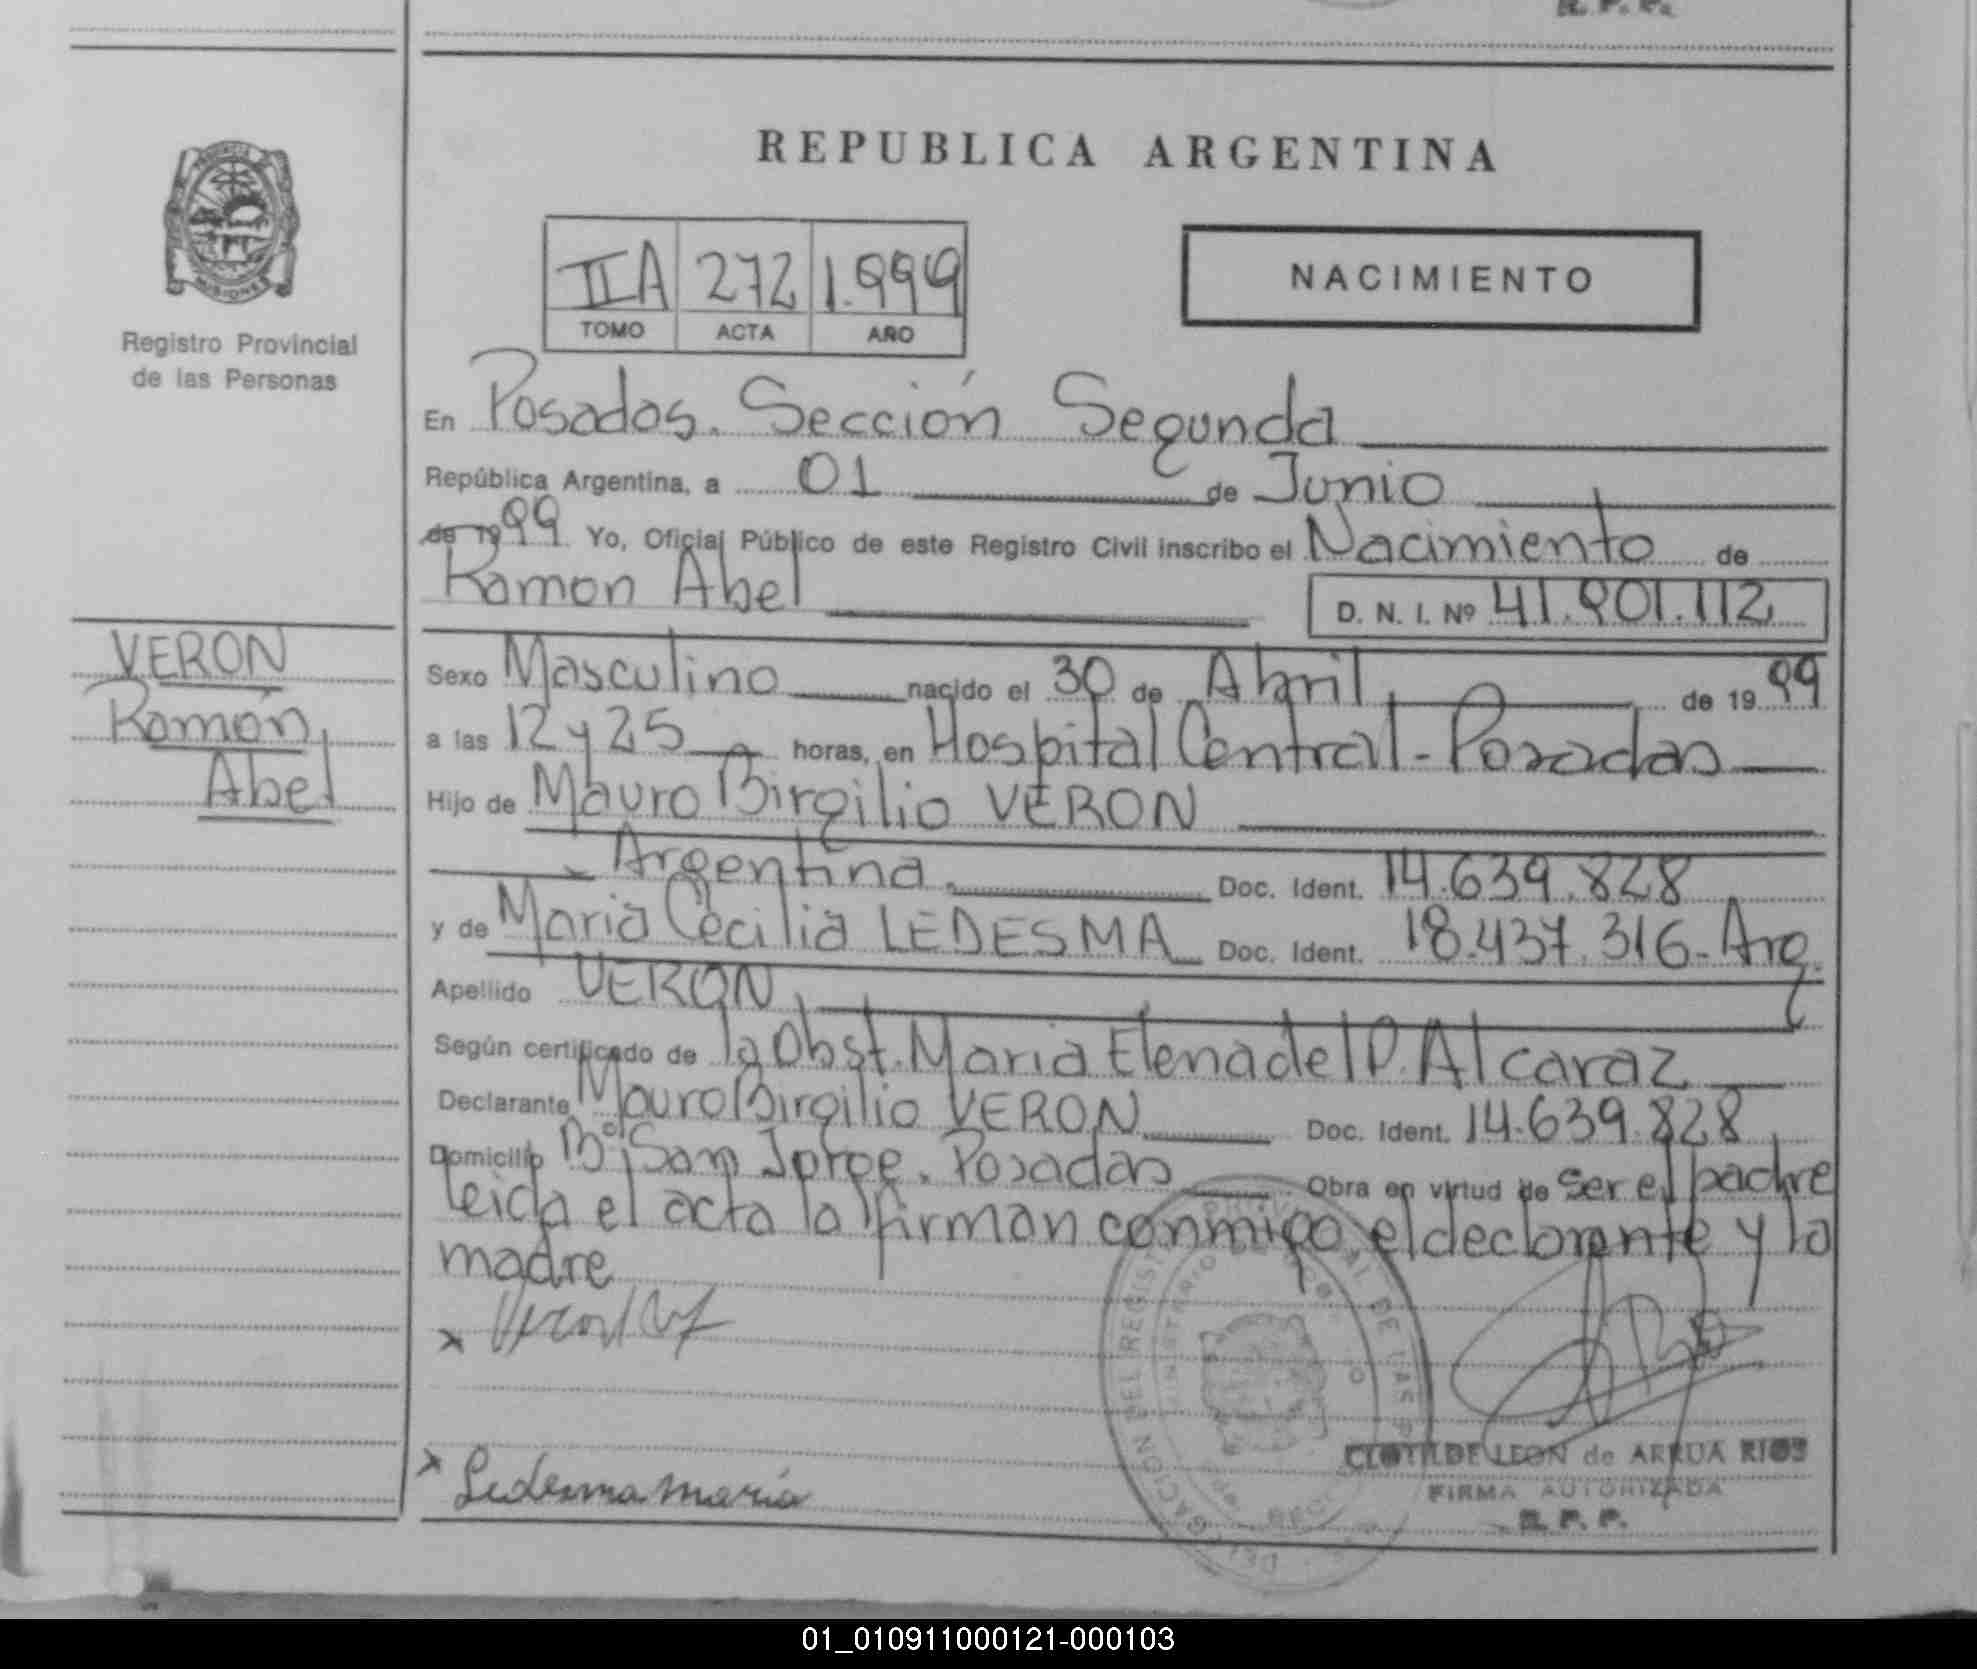 REPUBLICA ARGENTINA
PROVINCIA
MISIONES
Registro Provincial
de las Personas
IIA 272 1.999
TOMO ACTA AÑO
NACIMIENTO
En Posadas. Sección Segunda
República Argentina, a 01 de Junio
de 1999 Yo, Oficial Público de este Registro Civil inscribo el Nacimiento de
Ramon Abel D. N. I. Nº 41.901.112
VERON
Ramón,
Abel
Sexo Masculino nacido el 30 de Abril de 1999
a las 12 y 25 horas, en Hospital Central - Posadas
Hijo de Mauro Birgilio VERON
Argentina Doc. Ident. 14.639.828
y de Maria Cecilia LEDESMA Doc. Ident. 18.437.316 - Arg.
Apellido VERON
Según certificado de la Obst. Maria Elena del P. Alcaraz
Declarante Mauro Birgilio VERON Doc. Ident. 14.639.828
Domicilio Bº San Jorge. Posadas Obra en virtud de ser el padre
leida el acta la firman conmigo el declarante y la
madre
x Veron
x Ledesma Maria
CLOTILDE LEON de ARRUA RIOS
FIRMA AUTORIZADA
R. P. P.
01_010911000121-000103